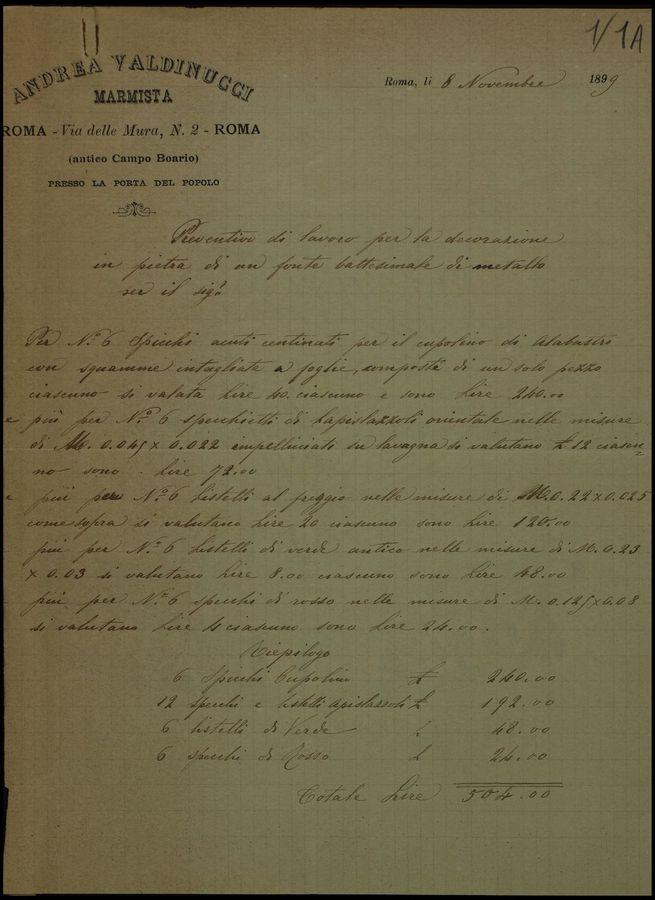 1/1A
ANDREA VALDINUCCI
MARMISTA
ROMA - Via delle Mura, N. 2 - ROMA
(antico Campo Boario)
PRESSO LA PORTA DEL POPOLO
Roma, li 8 Novembre 1899
Preventivo di lavoro per la decorazione
in pietra di un fonte battesimale di metallo
per il sigr
Per N.º 6 Spicchi acuti centinati per il cupolino di Alabastro
con squamme intagliate a foglie, composti di un solo pezzo
ciascuno si valuta Lire 40 ciascuno e sono Lire 240.00
e più per N.º 6 specchietti di Lapislazzoli orientale nelle misure
di M. 0.045 x 0.022 impelliciati su lavagna si valutano £ 12 ciascu=
no sono . Lire 72.00
e più per N.º 6 Listelli al freggio nelle misure di M. 0.22 x 0.025
come sopra si valutano Lire 20 ciascuno sono Lire 120.00
più per N.º 6 Listelli di verde antico nelle misure di M. 0.23
x 0.03 si valutano Lire 8.00 ciascuno sono Lire 48.00
più per N.º 6 specchi di rosso nelle misure di M. 0.125 x 0.08
si valutano Lire 4 ciascuno sono Lire 24.00.
Riepilogo
6 Spicchi Cupolino £ 240.00
12 specchi e listelli £ 192.00
6 listelli di Verde £ 48.00
6 specchi di Rosso £ 24.00
Totale Lire 504.00